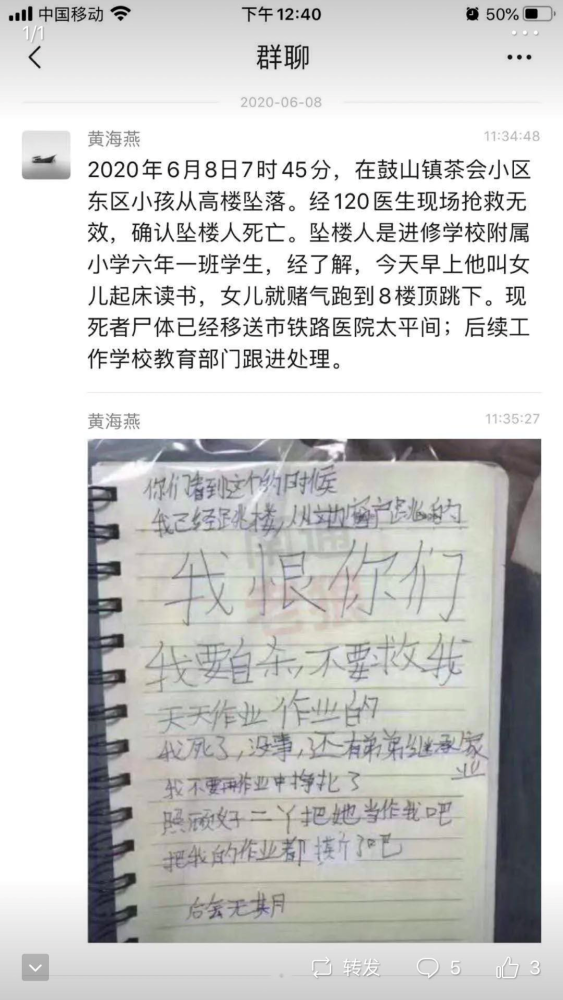 中国移动
下午12:40
50%
1/1
群聊
2020-06-08
黄海燕
11:34:48
2020年6月8日7时45分，在鼓山镇茶会小区
东区小孩从高楼坠落。经120医生现场抢救无
效，确认坠楼人死亡。坠楼人是进修学校附属
小学六年一班学生，经了解，今天早上他叫女
儿起床读书，女儿就赌气跑到8楼顶跳下。现
死者尸体已经移送市铁路医院太平间；后续工
作学校教育部门跟进处理。
黄海燕
11:35:27
你们看到这个的时候
我已经跳楼，从窗户跳的
我恨你们
我要自杀，不要救我
天天作业作业的
我死了，没事，还有弟弟继承家
业
我不要再作业中挣扎了
照顾好二丫把她当作我吧
把我的作业都 了吧
后会无期
转发
5
3